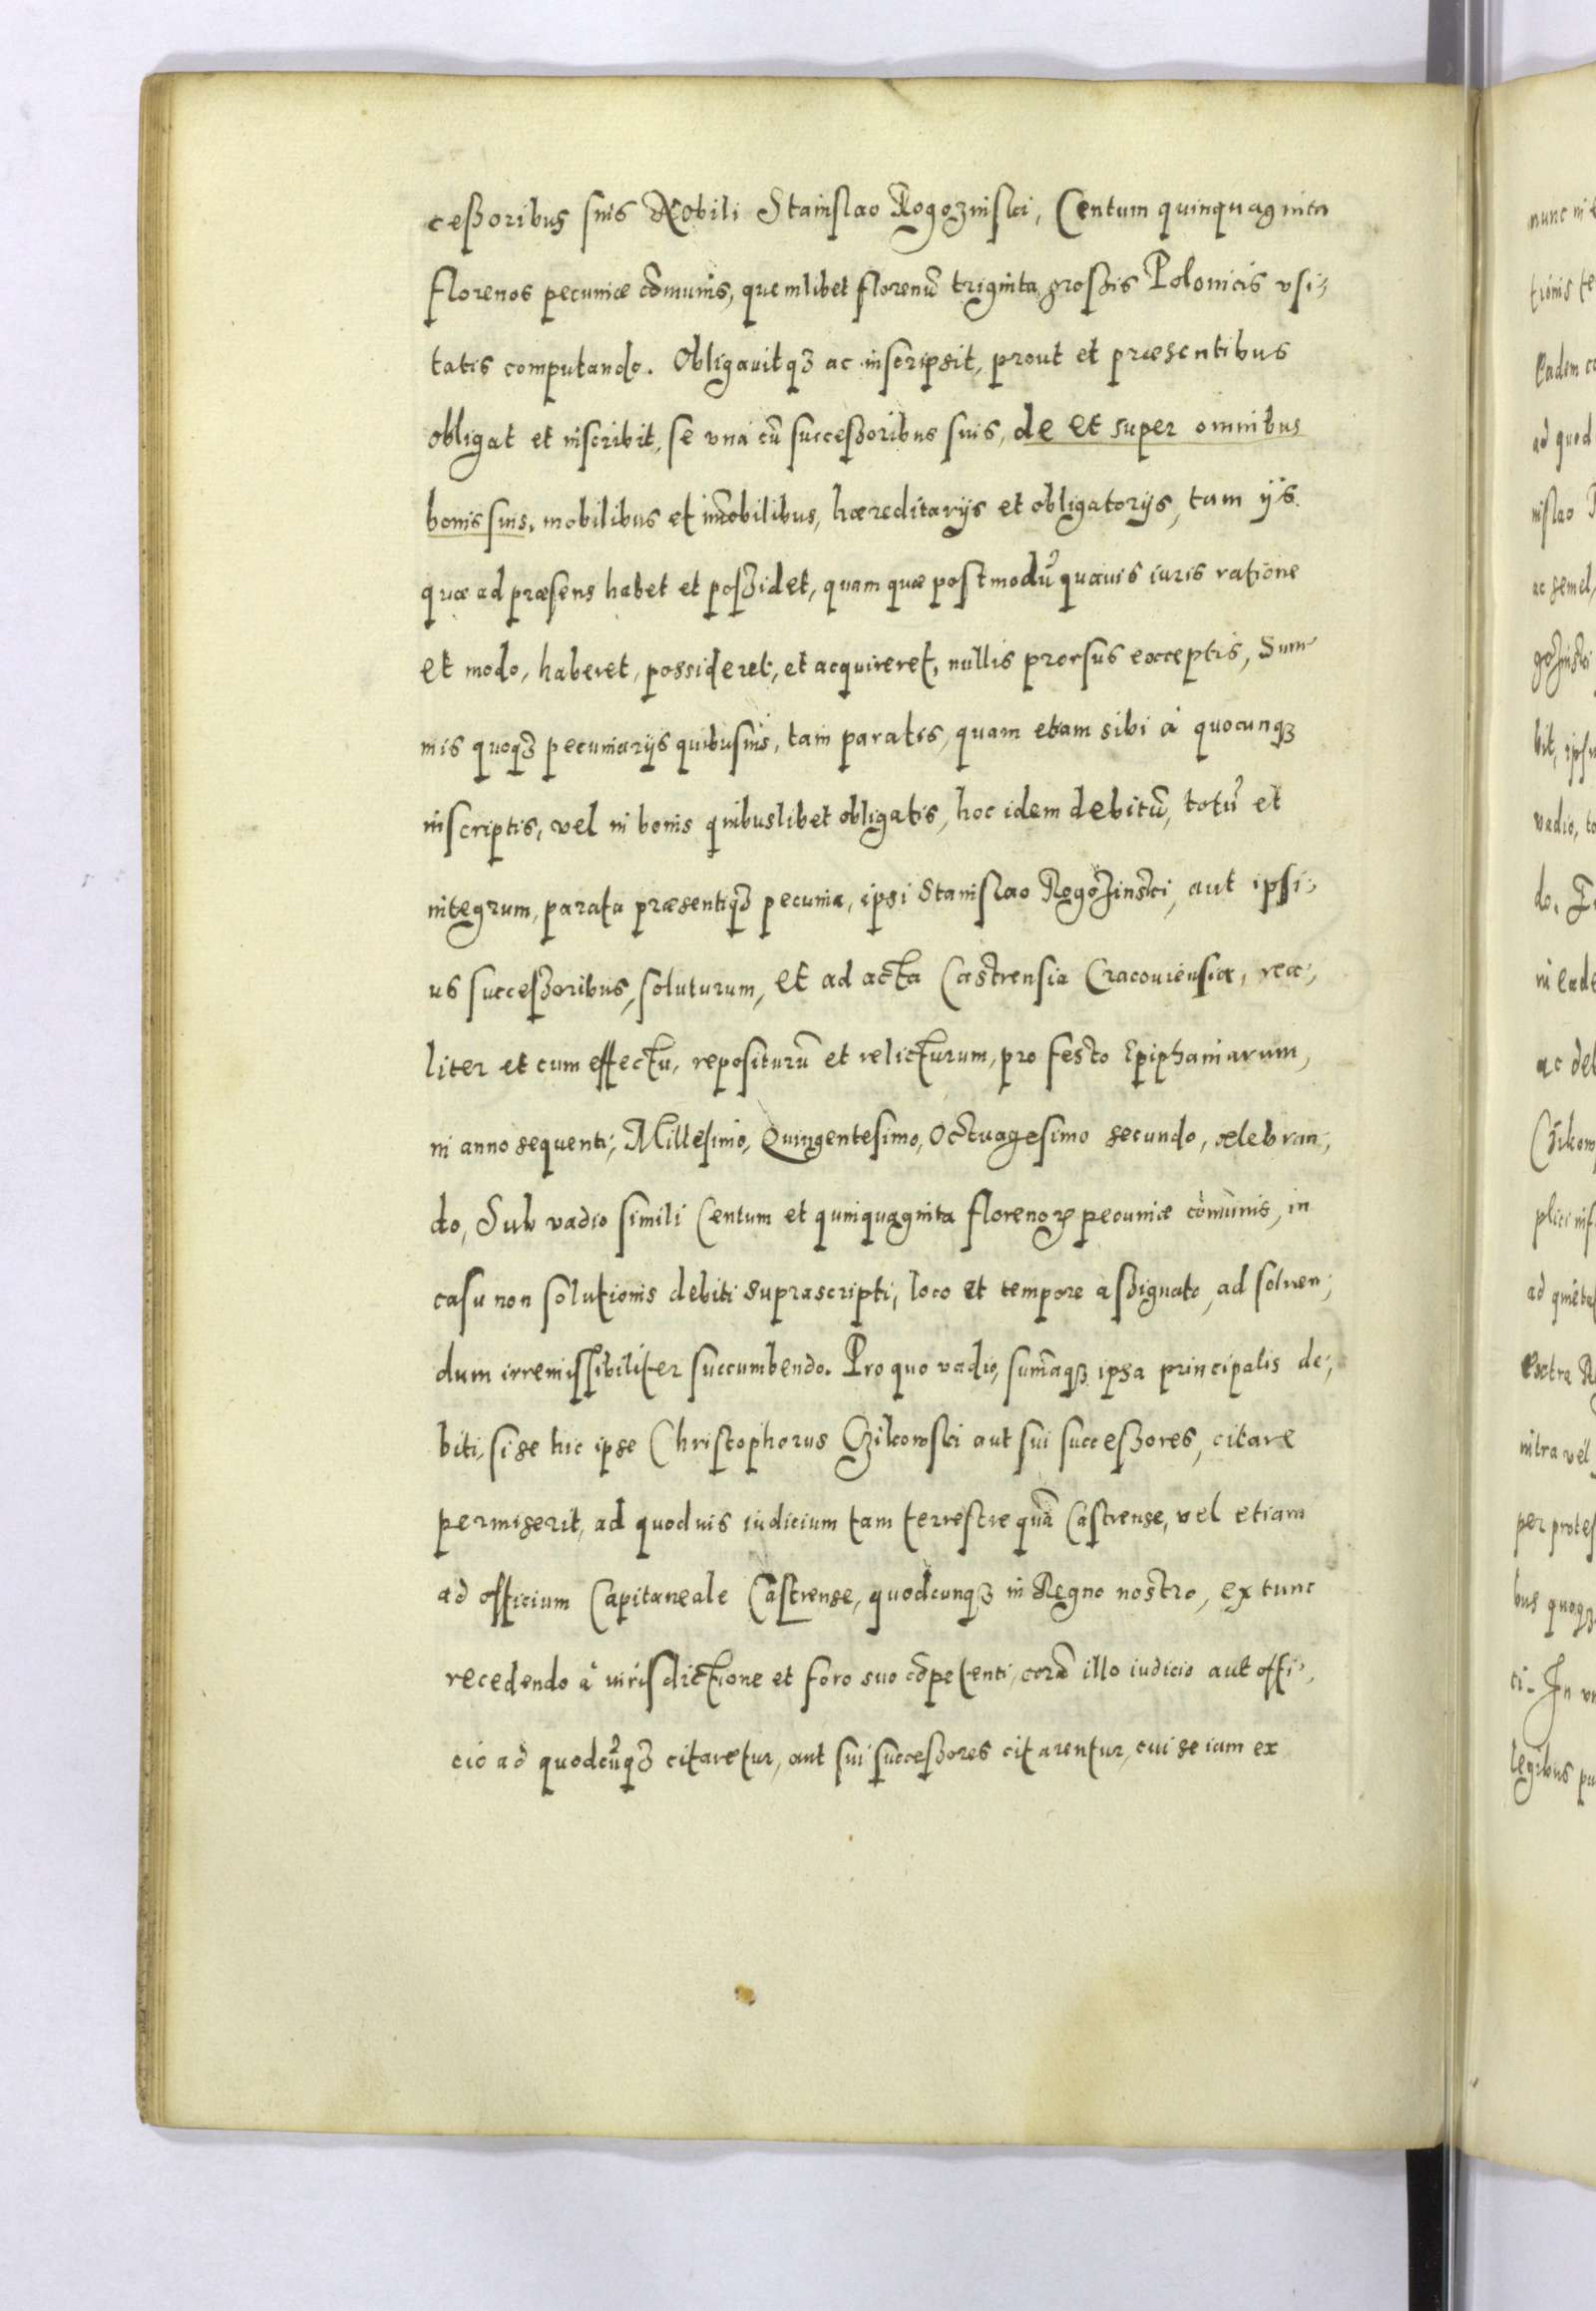 ceßoribus suis Nobili Stanislao Rogozinski, Centum quinquaginta
florenos pecuniæ cōmunis, quemlibet florenū triginta großis Polonicis vsi-
tatis computando. Obligauitqꝫ ac inscripsit, prout et præsentibus
obligat et inscribit, se vna cū succeßoribus suis, de et super omnibus
bonis suis, mobilibus et im̄obilibus, hæreditarijs et obligatorijs, tam ijs
quæ ad præsens habet et poßidet, quam quæ postmodū quauis iuris ratione
et modo, haberet, possideret, et acquireret, nullis prorsus exceptis, Sum-
mis quoqꝫ pecuniarijs quibusuis, tam paratis, quam etiam sibi à quocunqꝫ
inscriptis, vel in bonis quibuslibet obligatis, hoc idem debitū, totū et
integrum, parata præsentiqꝫ pecunia, ipsi Stanislao Rogozinski, aut ipsi-
us succeßoribus, soluturum, et ad acta Castrensia Cracouiensia, rea-
liter et cum effectu, repositurū et relicturum, pro festo Epiphaniarum,
in anno sequenti, Millesimo, Quingentesimo, Octuagesimo secundo, celebran-
do, Sub vadio simili Centum et quinquaginta florenoꝝ pecuniæ cōmunis, in
casu non solutionis debiti suprascripti, loco et tempore aßignato, ad soluen-
dum irremissibiliter succumbendo. Pro quo vadio, sum̄aqꝫ ipsa principalis de-
biti, si se hic ipse Christophorus Czikowski aut sui succeßores, citare
permiserit, ad quoduis iudicium tam terrestre quā Castrense, vel etiam
ad officium Capitaneale Castrense, quodcunqꝫ in Regno nostro, ex tunc
recedendo à iurisdictione et foro suo cōpetenti, corā illo iudicio aut offi-
cio ad quodcūqꝫ citaretur, aut sui succeßores citarentur, cui se iam ex
nunc in
ad quod
ac semel,
vadio,
in eade
ac deb
extra
intra vel
bus quoqꝫ
legibus